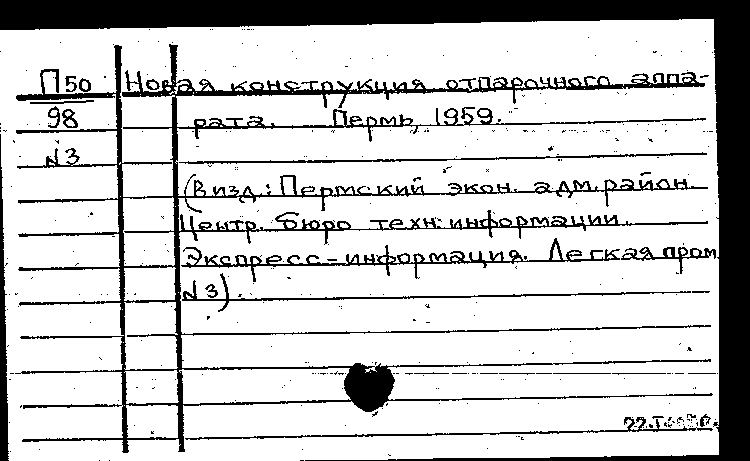 П50 Новая конструкция отпарочного аппа-
98 рата. Пермь, 1959.
N3
(В изд.: Пермский экон. адм. район.
Центр. бюро техн. информации.
Экспресс-информация. Легкая пром.
N3).